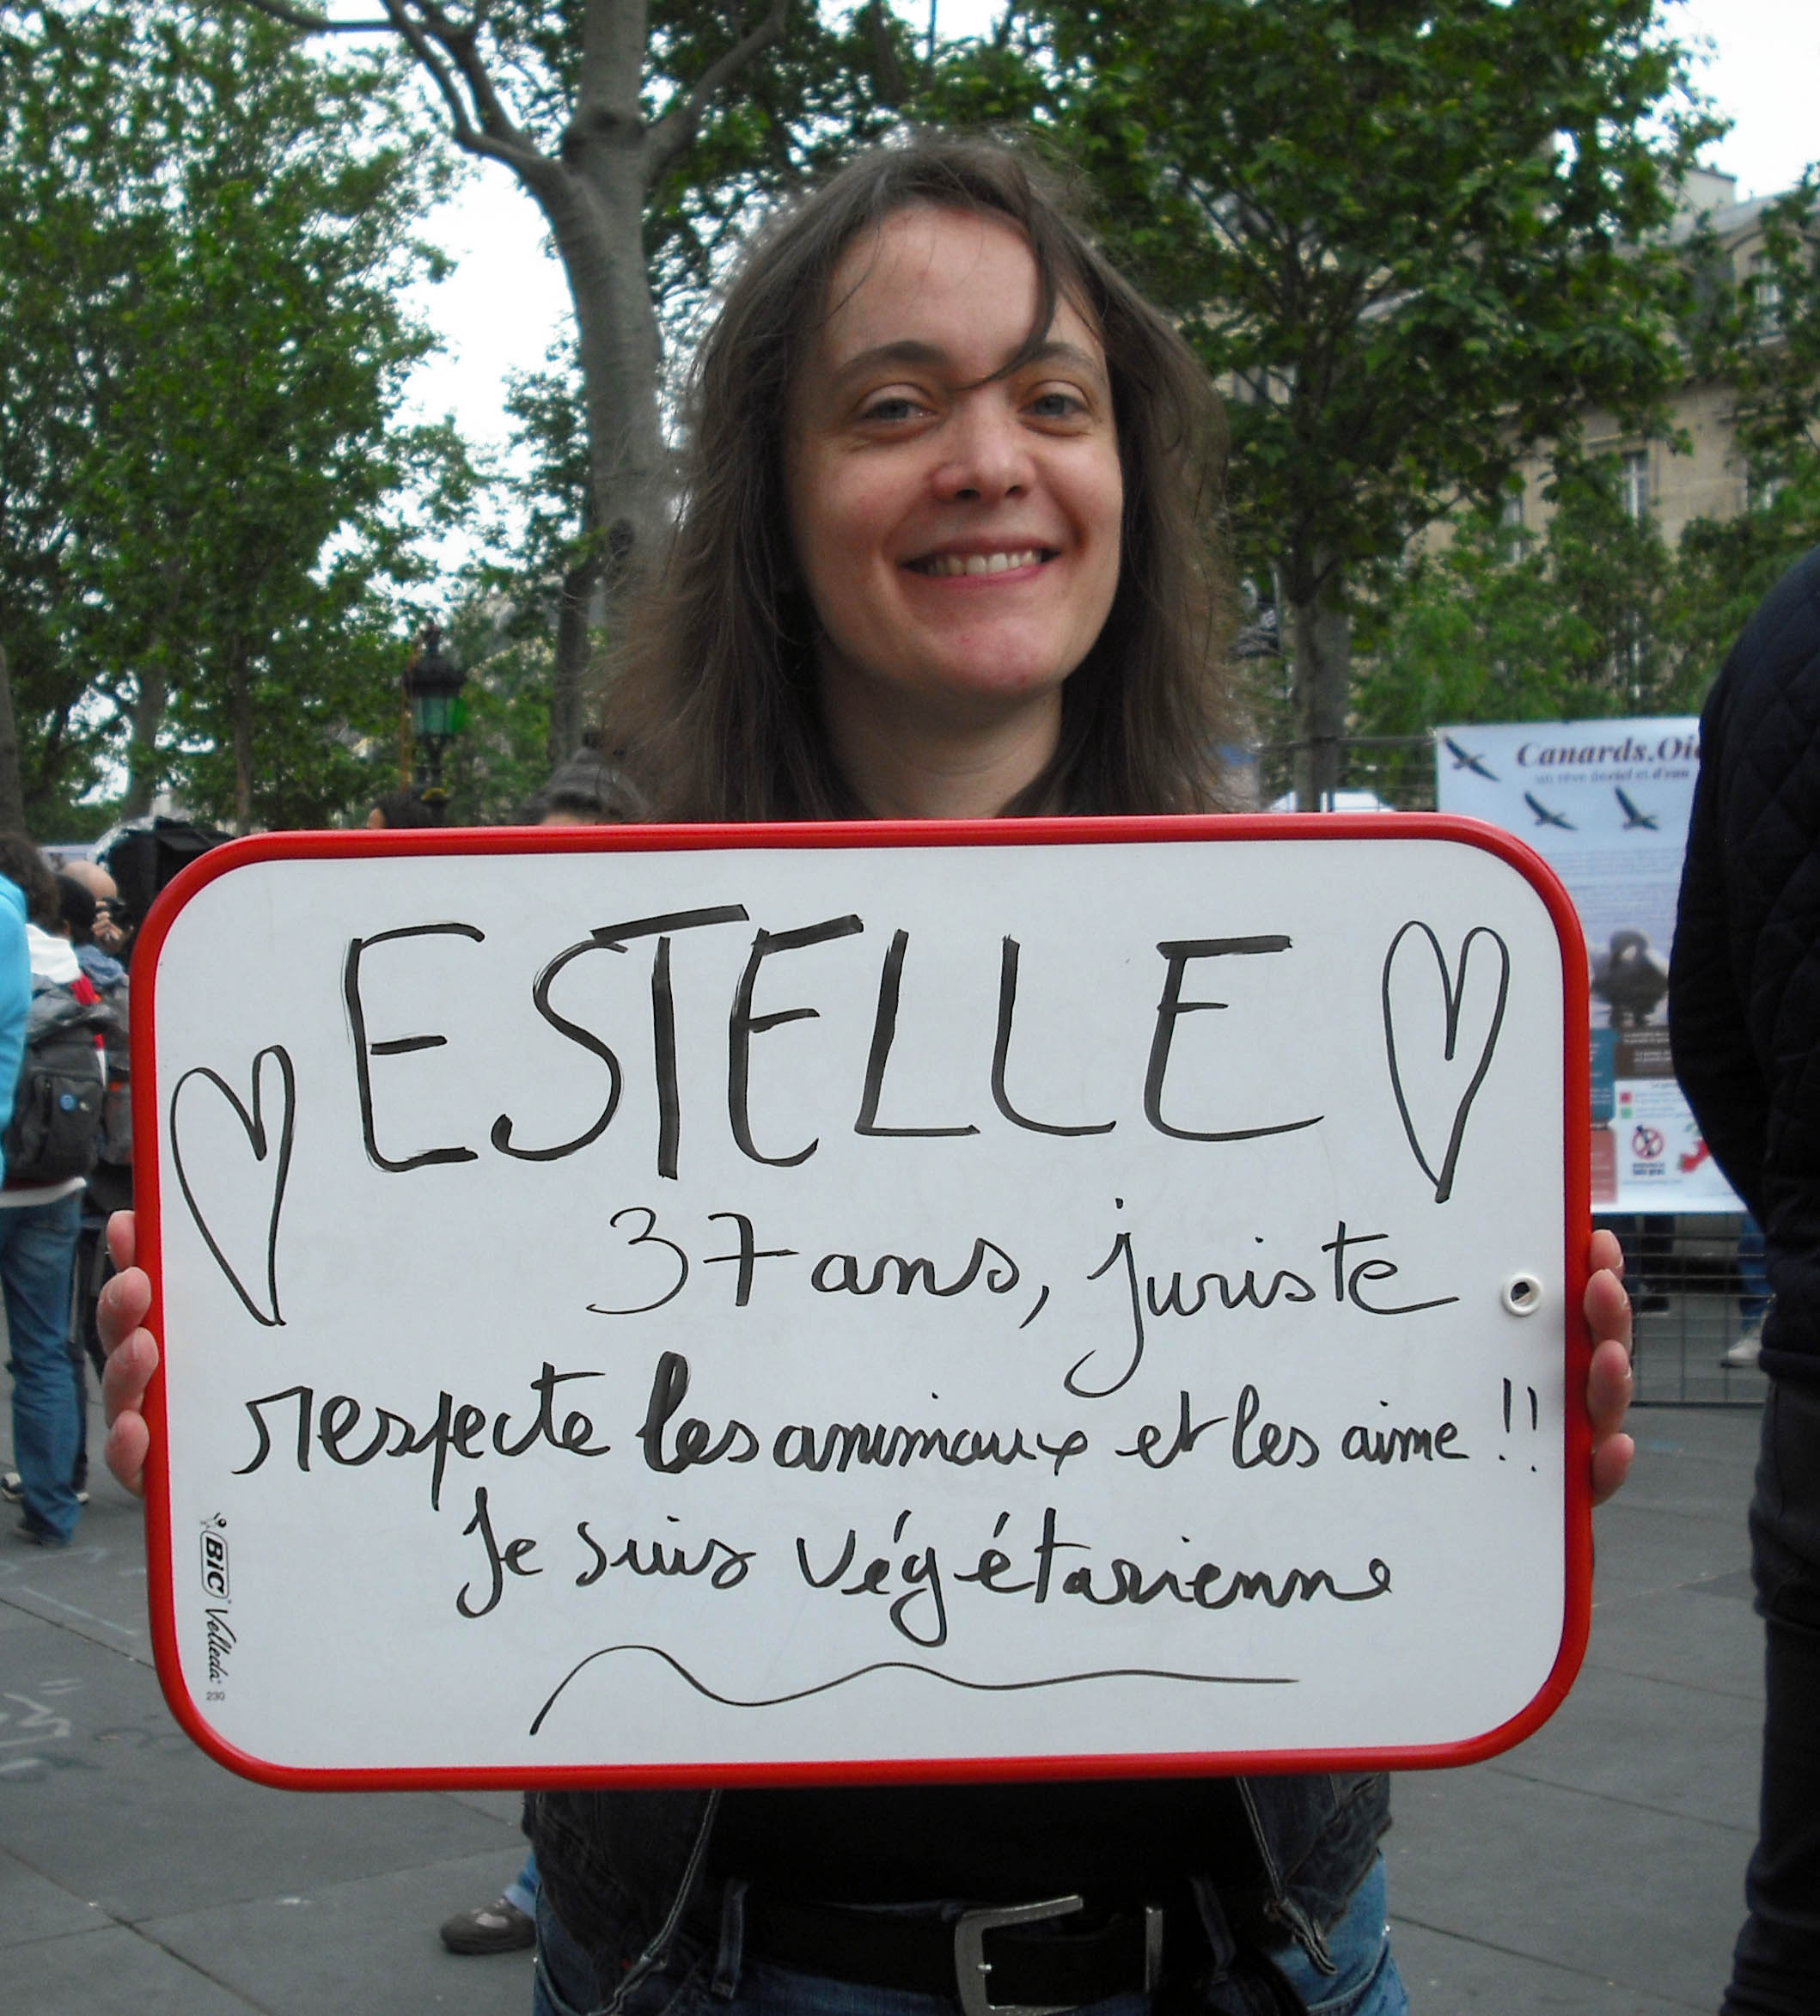 Canards.Oi
un rêve de ciel et d'eau
ESTELLE
37 ans, juriste
respecte les animaux et les aime !!
Je suis végétarienne
BIC Velleda 230